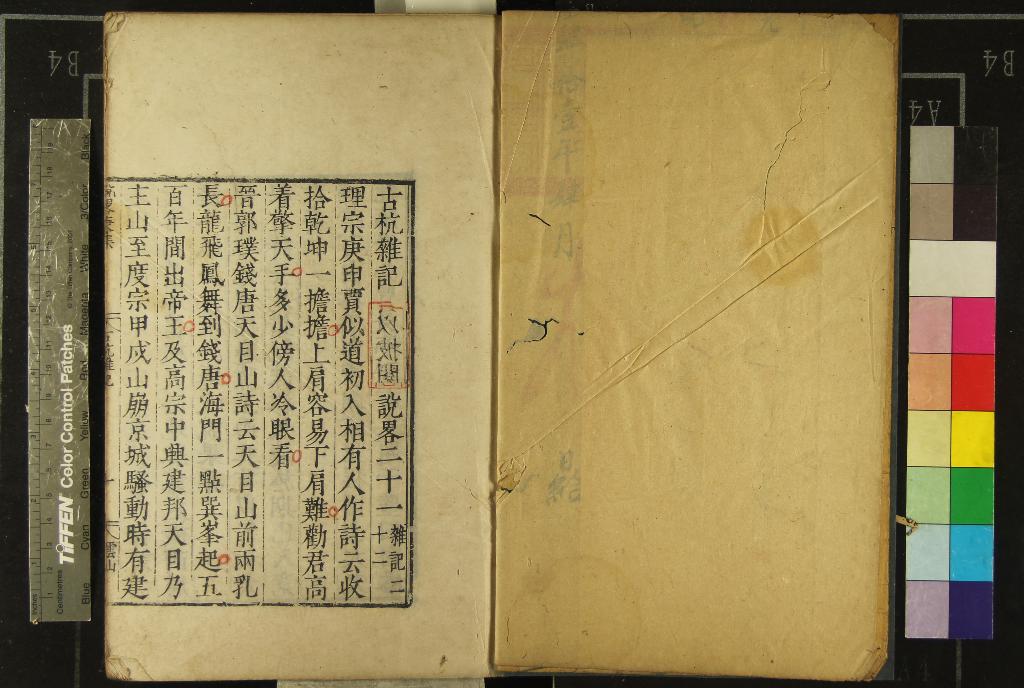 古杭雜記 說畧二十一 雜記二十二
理宗庚申賈似道初入相有人作詩云收
拾乾坤一擔擔上肩容易下肩難勸君高
着擎天手多少傍人冷眼看
晉郭璞錢唐天目山詩云天目山前兩乳
長龍飛鳳舞到錢唐海門一點巽峯起五
百年間出帝王及高宗中興建邦天目乃
主山至度宗甲戌山崩京城騷動時有建
雲山
TIFFEN Color Control Patches
Blue
Cyan
Green
Yellow
Red
Magenta
White
3/Color
Black
Inches
Centimetres
B4
B4
A4